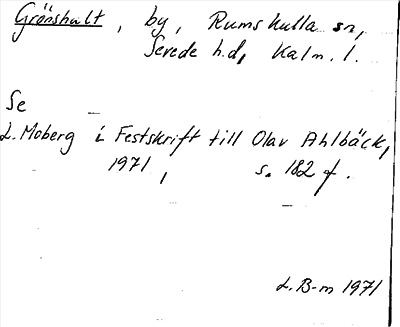 Grönshult, by, Rumskulla sn,
Sevede h.d, Kalm. l.
Se
L. Moberg i Festskrift till Olav Ahlbäck,
1971, s. 182 f.
L. B-m 1971